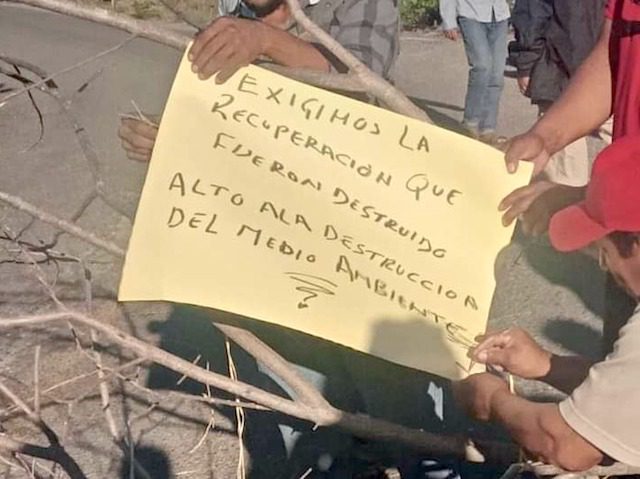 EXIGIMOS LA
RECUPERACIÓN QUE
FUERON DESTRUIDO
ALTO A LA DESTRUCCIOA
DEL MEDIO AMBIENTE